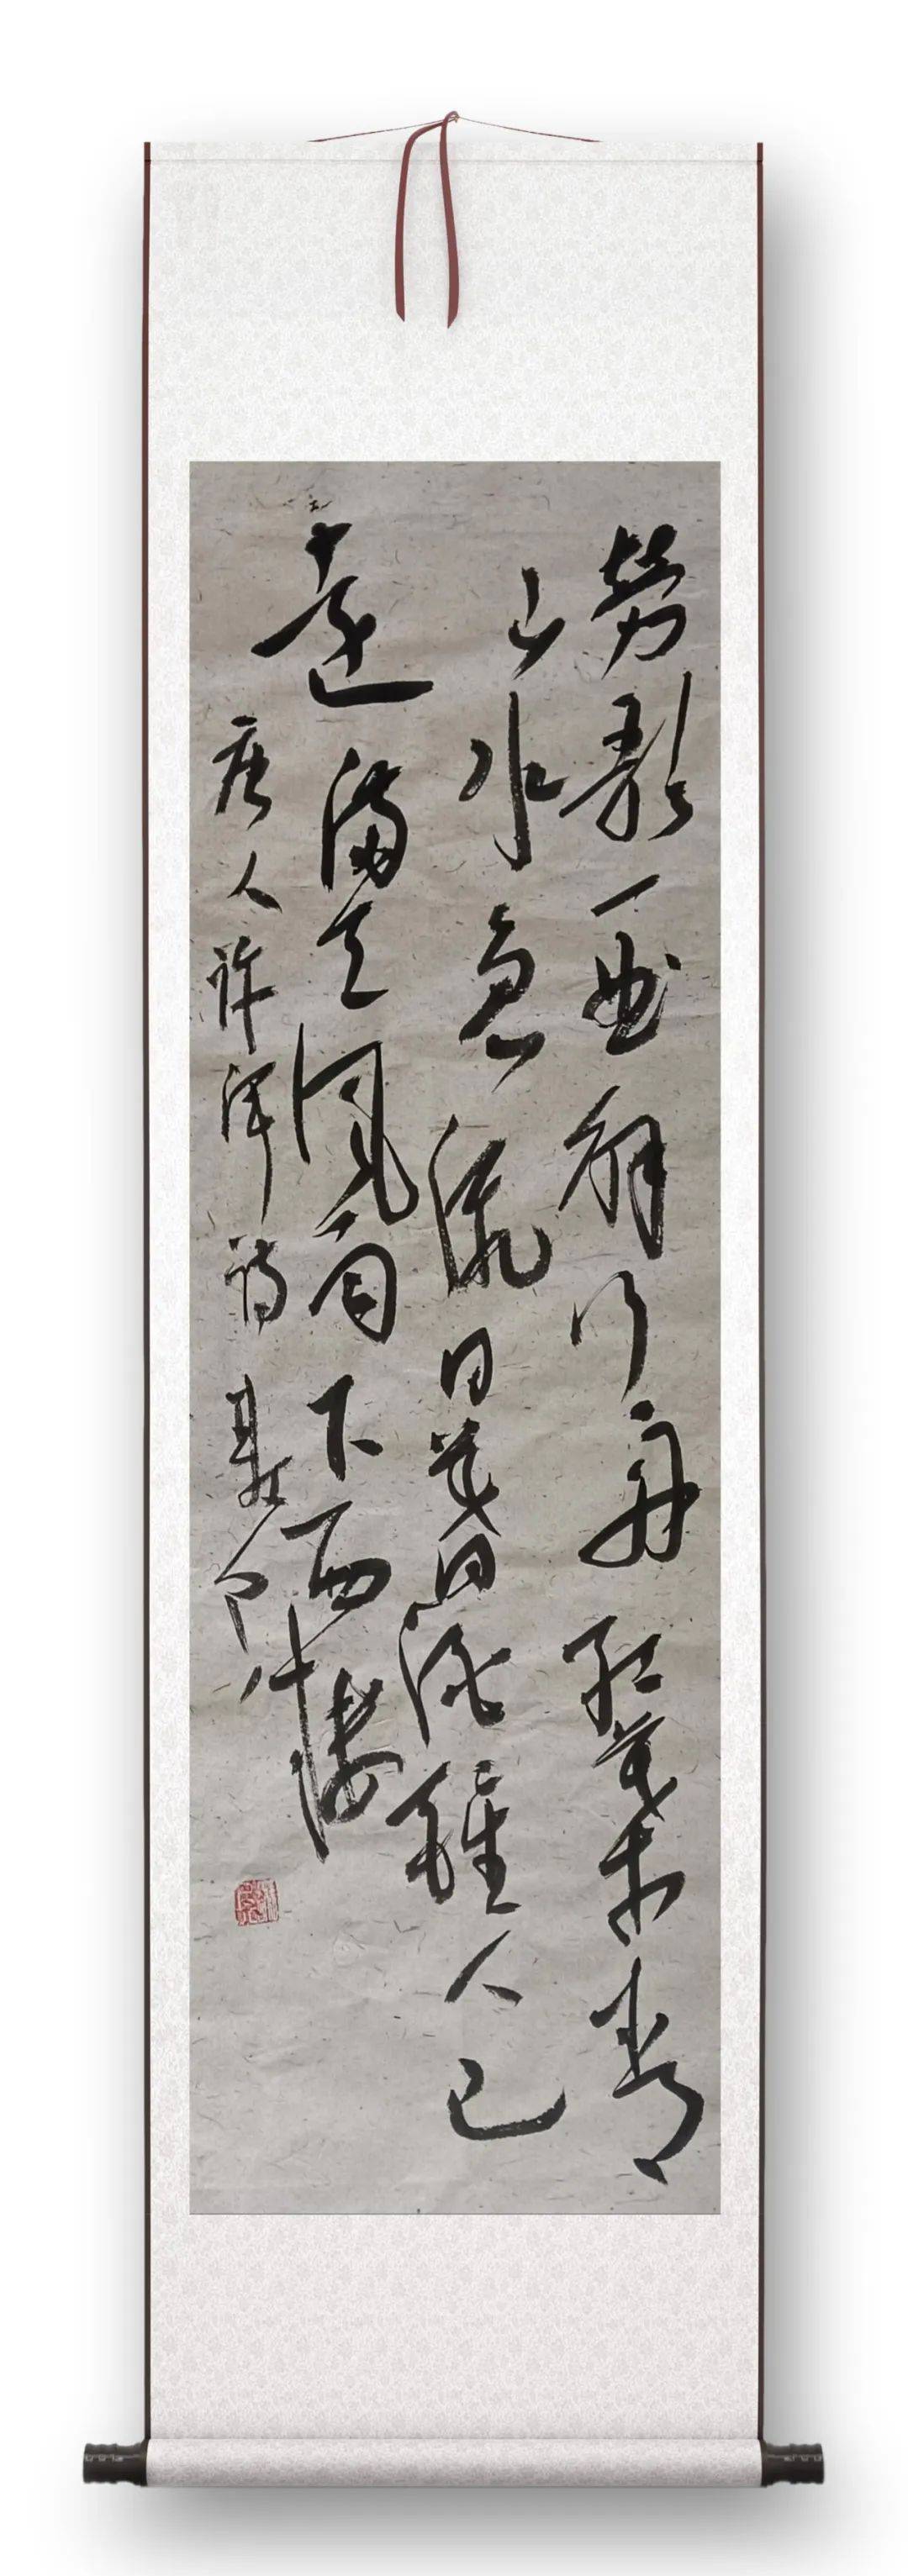 劳歌一曲解行舟红叶青
山水急流日暮酒醒人已
远满天风雨下西楼
唐人许浑诗